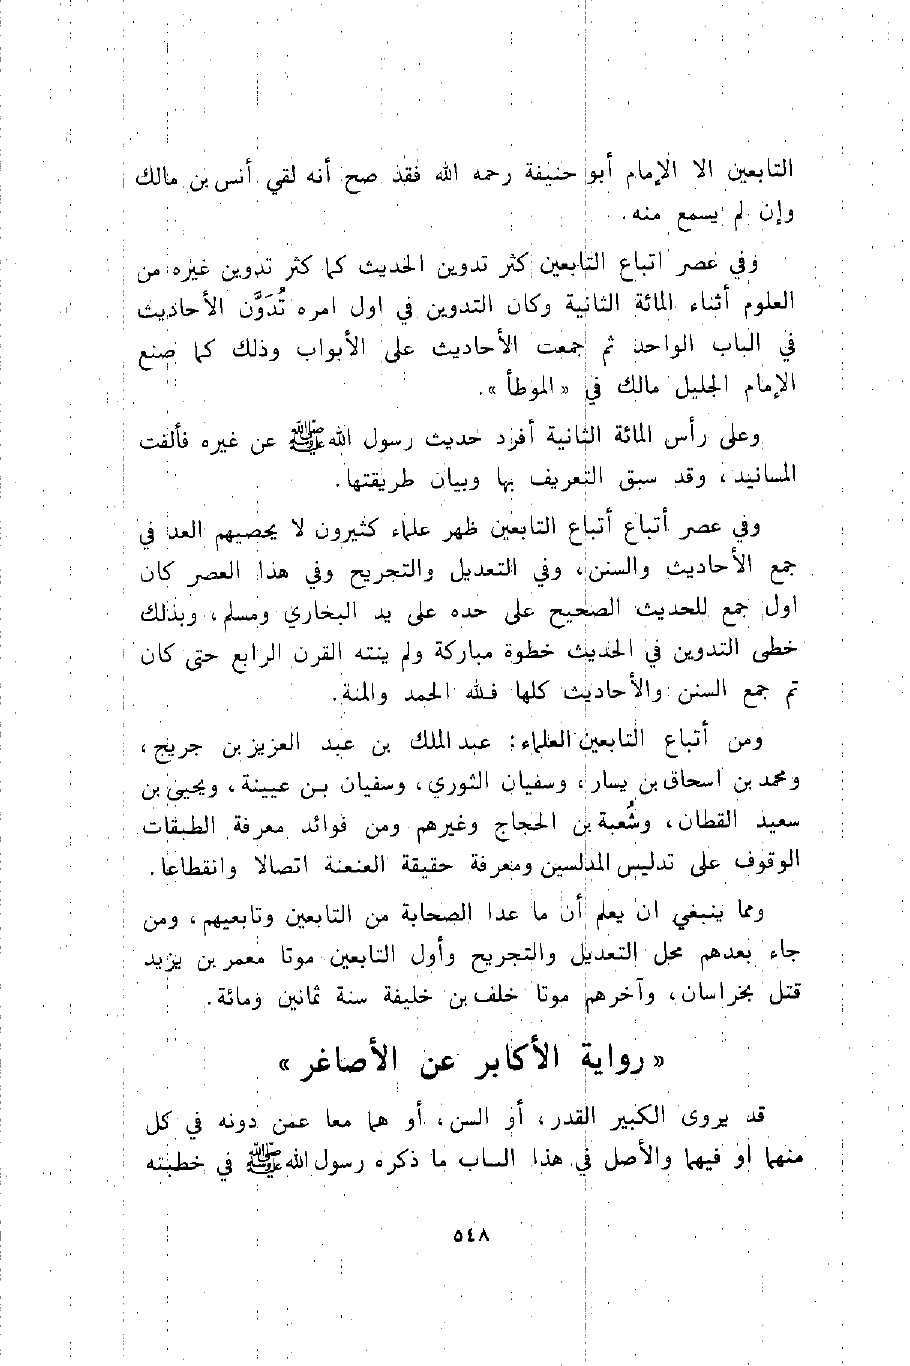 التابعين الا الإمام أبو حنيفة رحمه الله فقد صح أنه لقي أنس بن مالك
وإن لم يسمع منه.
وفي عصر اتباع التابعين كثر تدوين الحديث كما كثر تدوين غيره من
العلوم أثناء المائة الثانية وكان التدوين في اول امره تُدَوَّن الأحاديث
في الباب الواحد ثم جمعت الأحاديث على الأبواب وذلك كما صنع
الإمام الجليل مالك في «الموطأ».
وعلى رأس المائة الثانية أفرد حديث رسول الله ﷺ عن غيره فألفت
المسانيد، وقد سبق التعريف بها وبيان طريقتها.
وفي عصر أتباع أتباع التابعين ظهر علماء كثيرون لا يحصيهم العد في
جمع الأحاديث والسنن، وفي التعديل والتجريح وفي هذا العصر كان
اول جمع للحديث الصحيح على حده على يد البخاري ومسلم، وبذلك
خطى التدوين في الحديث خطوة مباركة ولم ينته القرن الرابع حتى كان
تم جمع السنن والأحاديث كلها فلله الحمد والمنة.
ومن أتباع التابعين العلماء: عبد الملك بن عبد العزيز بن جريج،
ومحمد بن اسحاق بن يسار، وسفيان الثوري، وسفيان بن عيينة، ويحيى بن
سعيد القطان، وشُعبة بن الحجاج وغيرهم ومن فوائد معرفة الطبقات
الوقوف على تدليس المدلسين ومعرفة حقيقة العنعنة اتصالا وانقطاعا.
ومما ينبغي ان يعلم أن ما عدا الصحابة من التابعين وتابعيهم، ومن
جاء بعدهم محل التعديل والتجريح وأول التابعين موتا معمر بن يزيد
قتل بخراسان، وآخرهم موتا خلف بن خليفة سنة ثمانين ومائة.
«رواية الأكابر عن الأصاغر»
قد يروى الكبير القدر، أو السن، أو هما معا عمن دونه في كل
منهما او فيهما والأصل في هذا الباب ما ذكره رسول الله ﷺ في خطبته
٥٤٨